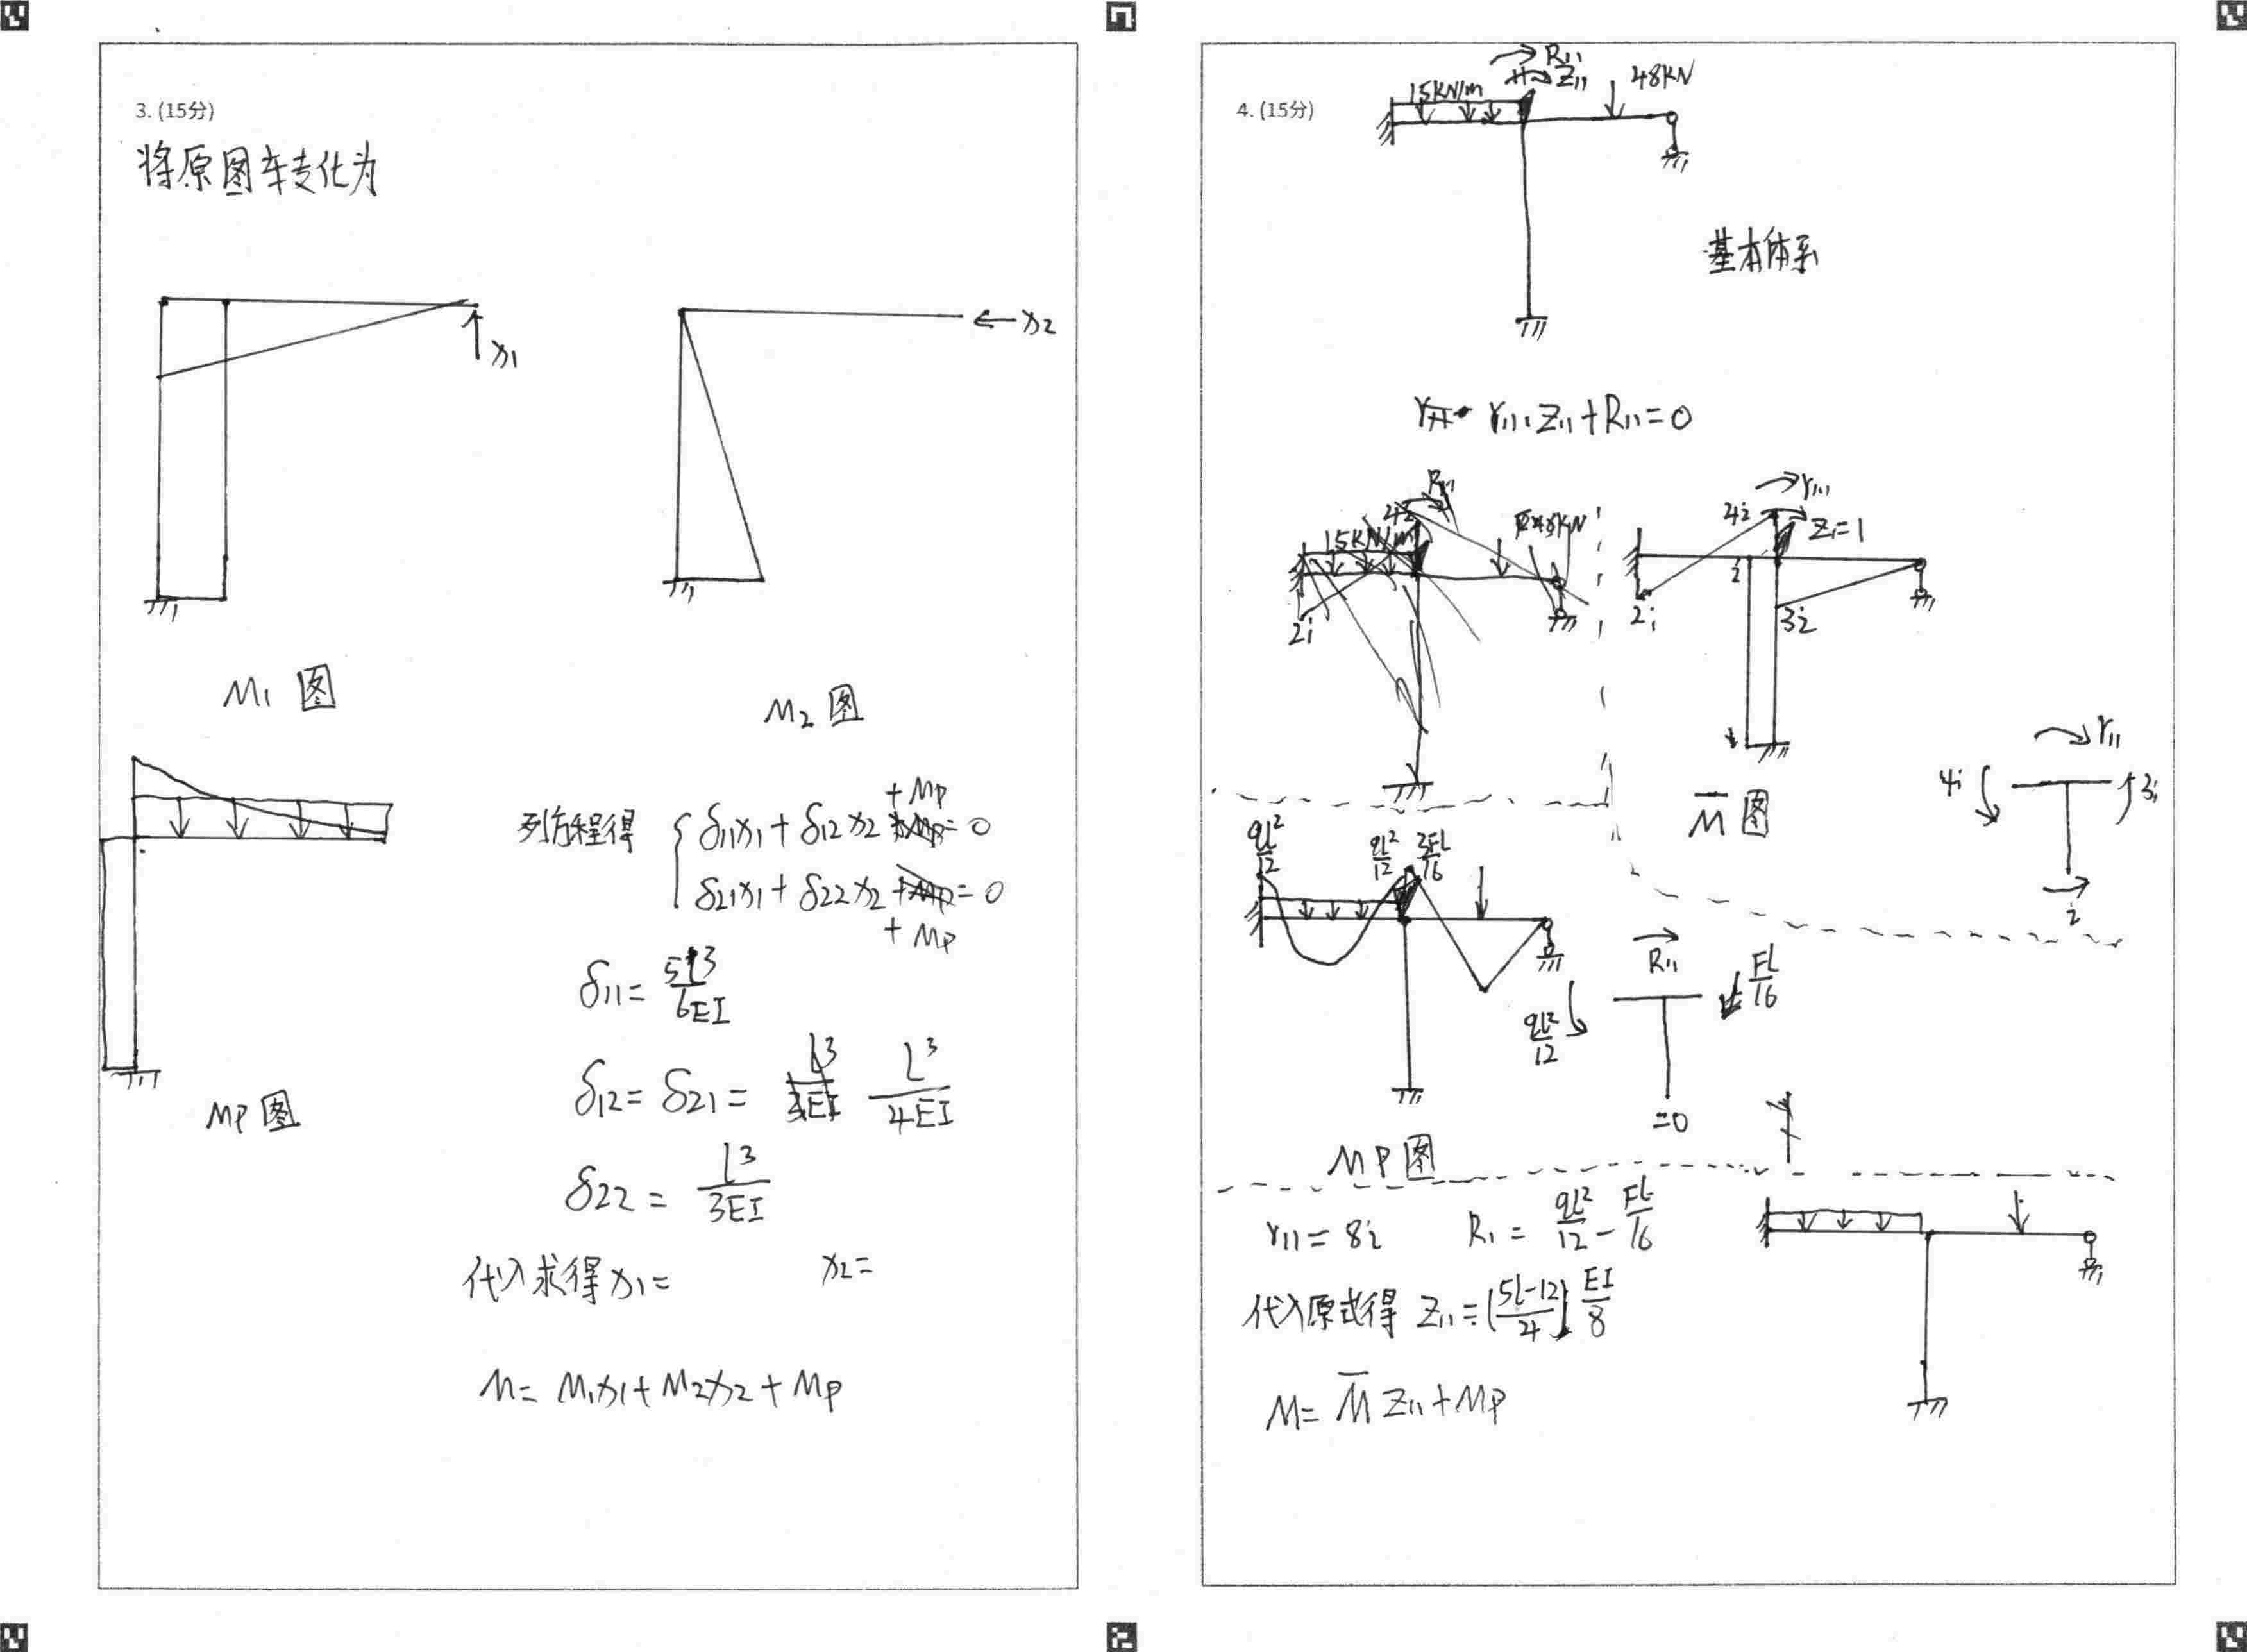 3. (15分)
将原图转化为
x1
x2
M1 图
M2 图
列方程得
δ11x1 + δ12x2 + Mp = 0
δ21x1 + δ22x2 + Mp = 0
Mp 图
δ11 = 5l³/6EI
δ12 = δ21 = l³/4EI
δ22 = l³/3EI
代入求得 x1 = x2 =
M = M1x1 + M2x2 + Mp
4. (15分)
R11
Z11
15KN/m
48KN
基本体系
r11·Z11 + R11 = 0
15KN/m
2i
4i
r11
Z1=1
i
2i
3i
M̄ 图
r11
4i
3i
i
ql²/12
ql²/12
3FL/16
R11
ql²/12
FL/16
=0
MP 图
r11 = 8i R1 = ql²/12 - FL/16
代入原式得 Z11 = (5l-12/4) EI/8
M = M̄ Z11 + Mp